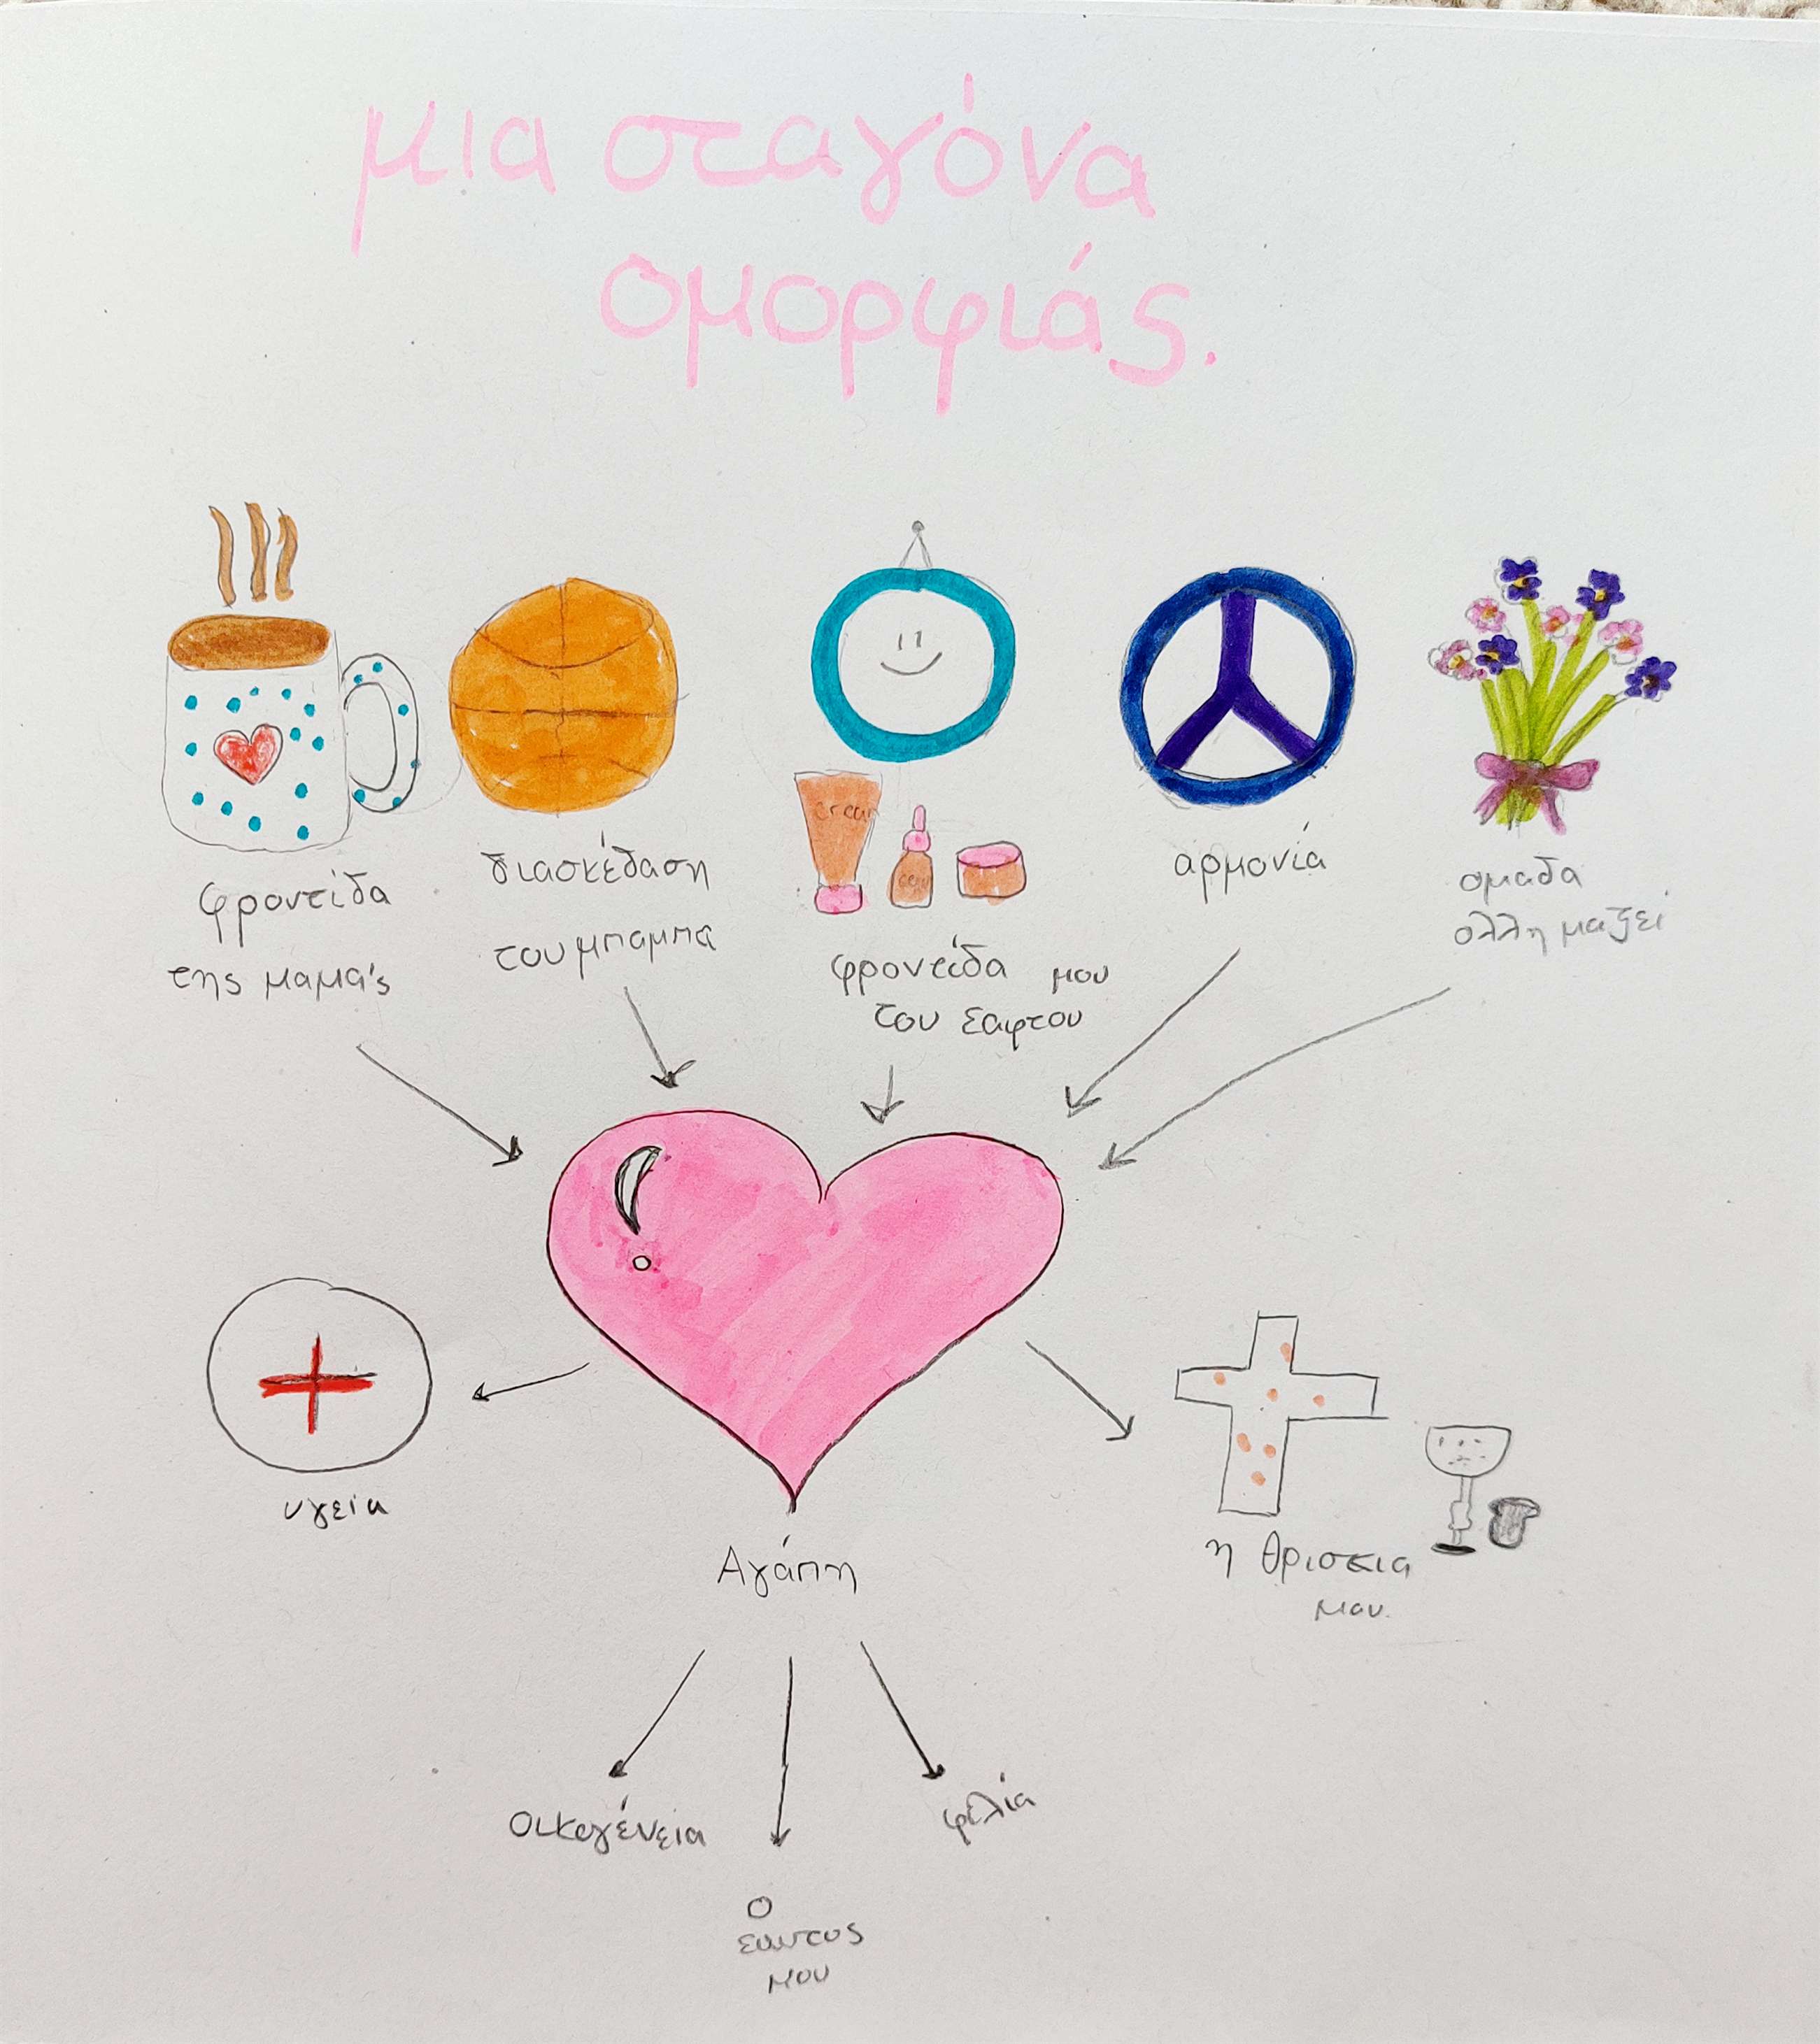 μια σταγόνα
ομορφιάς.
φροντίδα
της μαμάς
διασκέδαση
του μπαμπα
cream
φροντίδα μου
του εαφτου
αρμονία
ομαδα
ολλη μαζεί
υγεία
Αγάπη
η θρισκια
μου.
οικογένεια
ο
εαυτος
μου
φελία